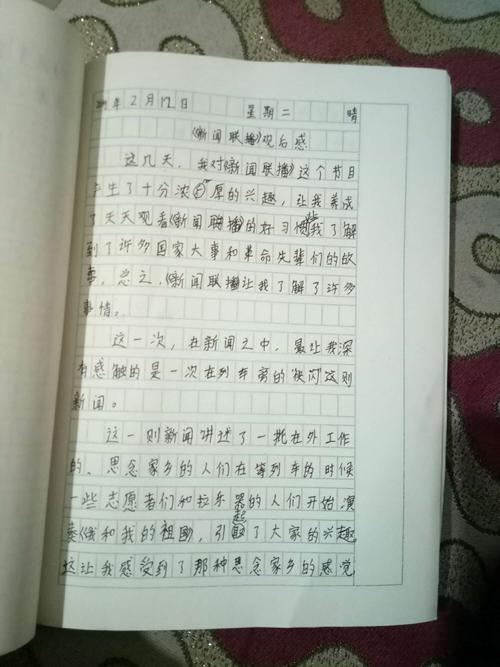 年2月12日 星期二 晴
《新闻联播》观后感
这几天，我对《新闻联播》这个节目
产生了十分浓厚的兴趣，让我养成
了天天观看《新闻联播》的好习惯，我了解
到了许多国家大事和革命先辈们的故
事，总之，《新闻联播》让我了解了许多
事情。
这一次，在新闻之中，最让我深
有感触的是一次在列车旁的“快闪”这则
新闻。
这一则新闻讲述了一批在外工作
的、思念家乡的人们在等列车的时候
一些志愿者们和拉乐器的人们开始演
奏《我和我的祖国》，引起了大家的兴趣，
这让我感受到了那种思念家乡的感觉